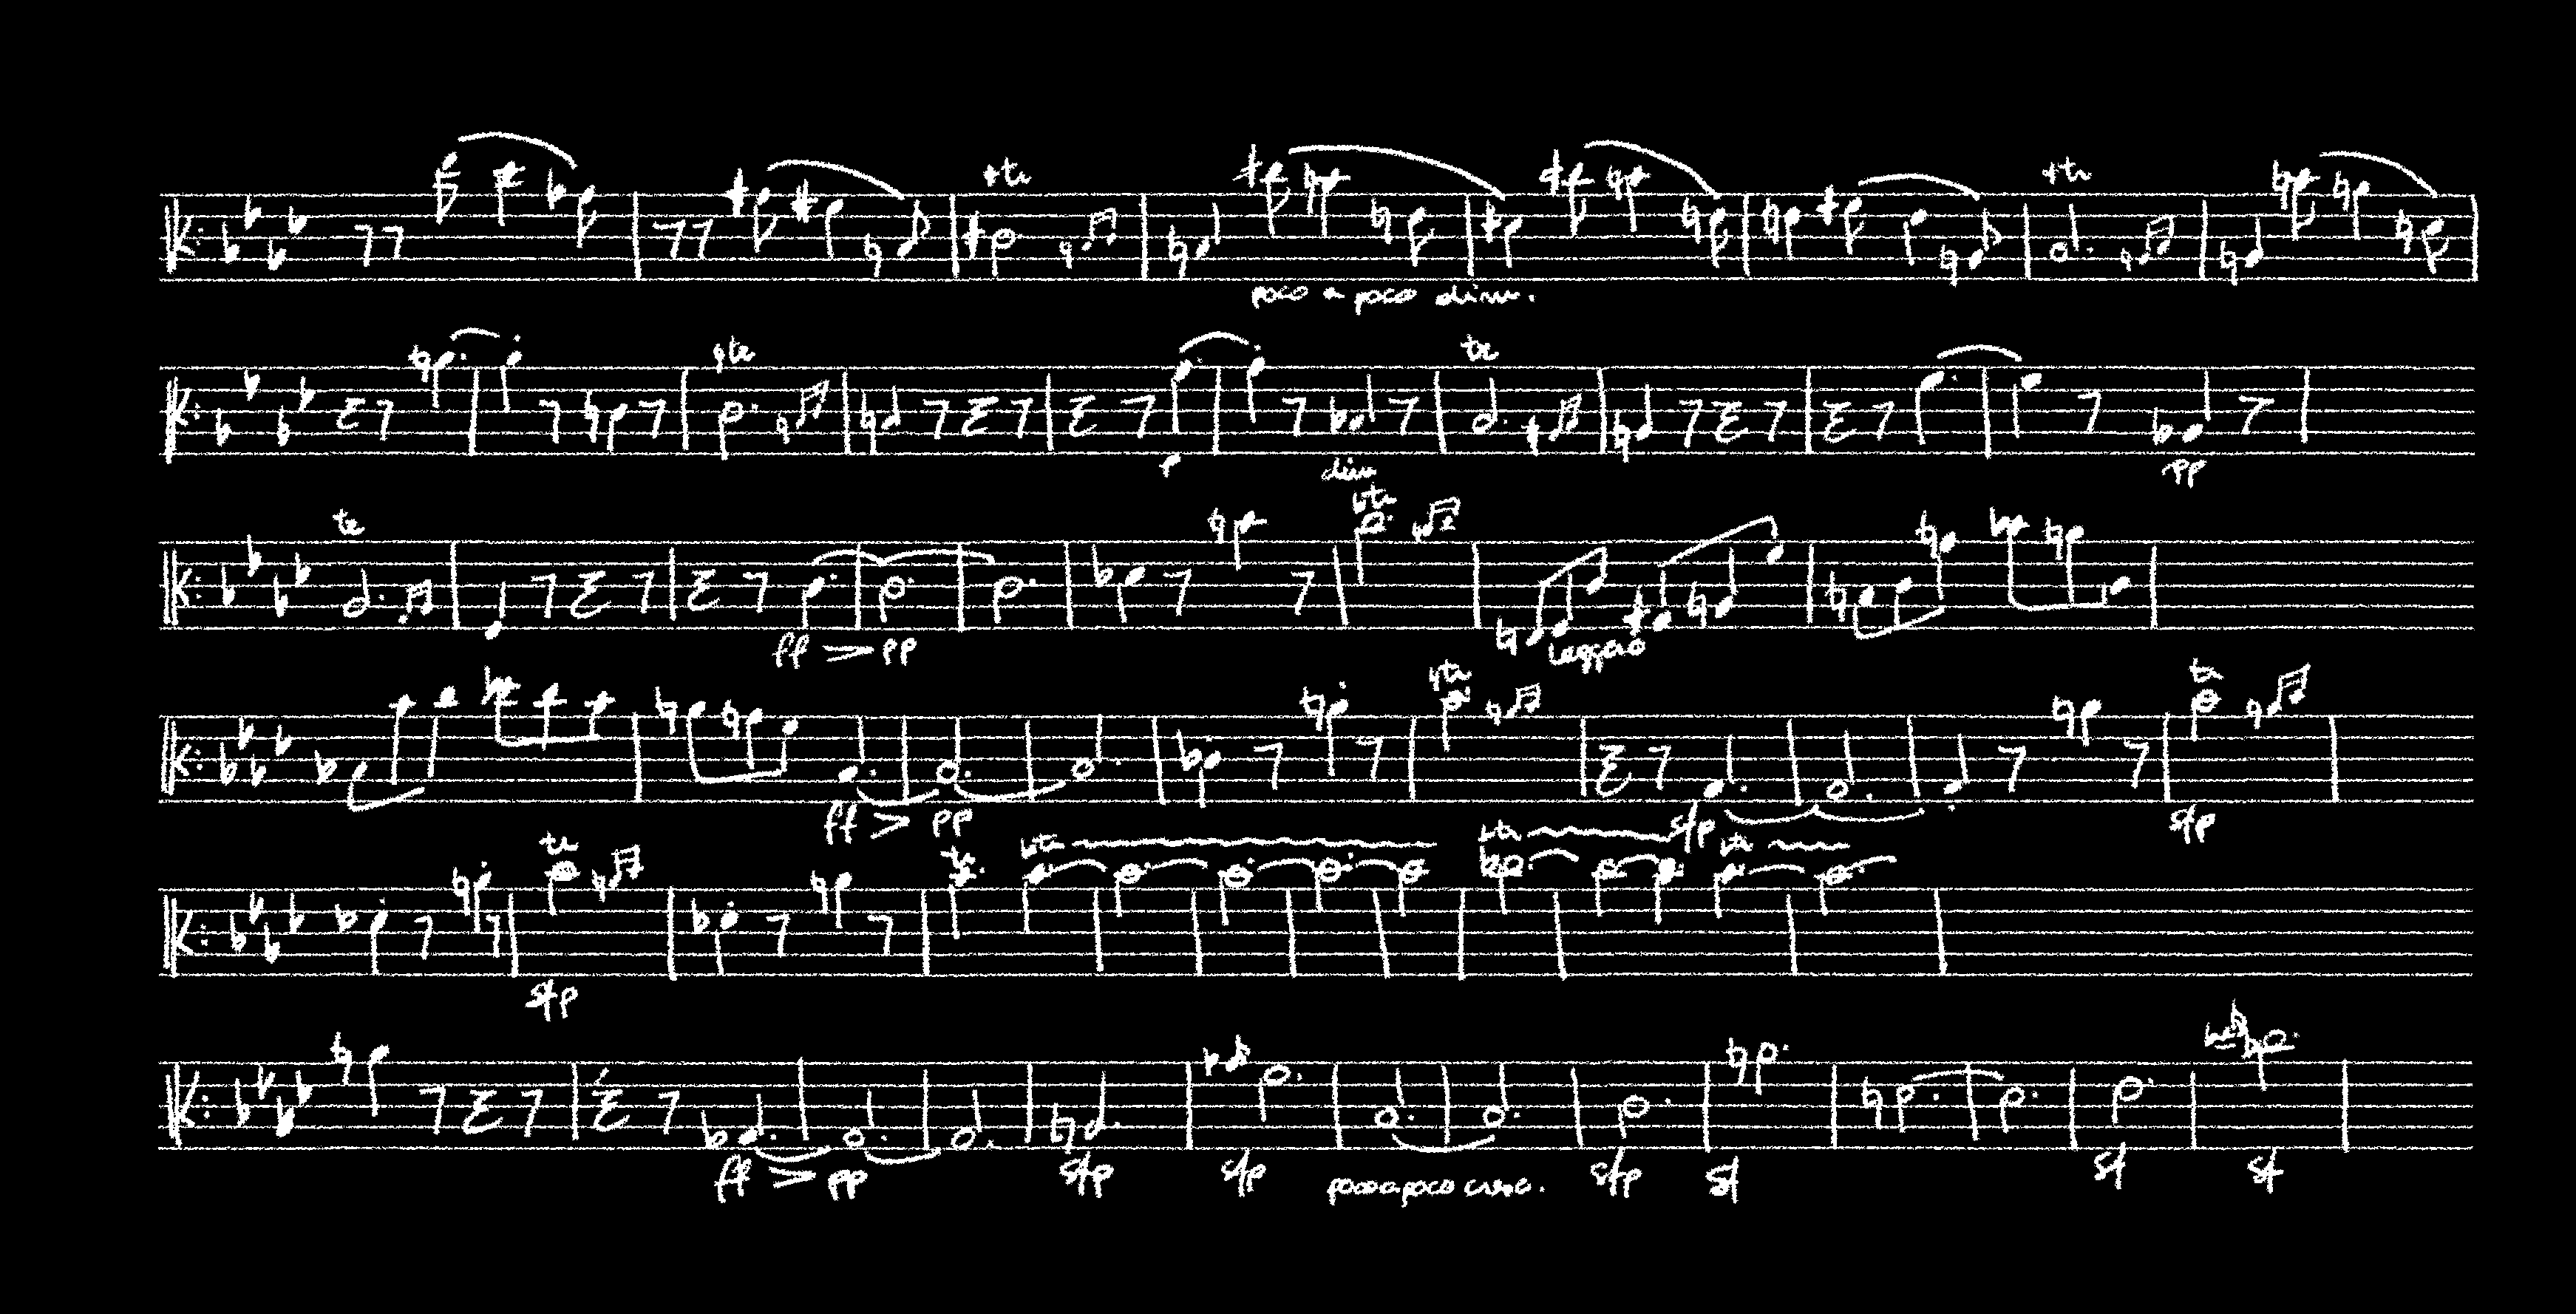 tr tr
poco a poco dim.
tr tr
p dim pp
tr tr
ff > pp leggero
tr tr
ff > pp sfp sfp
tr tr tr tr tr
sfp
ff > pp sfp sfp poco a poco cresc. sfp sf sf sf